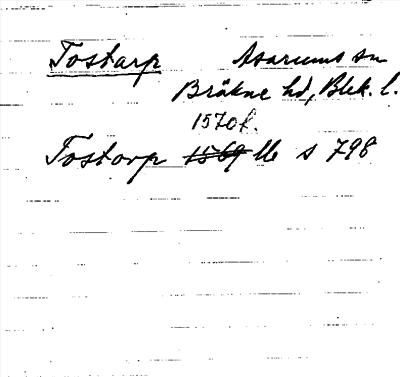 Tostarp Asarums sn
Bräkne hd, Blek. l.
1570 f.
Tostorp 1569 s 798